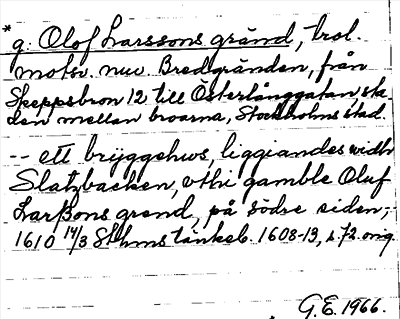 * g. Olof Larssons gränd, trol.
motsv. nuv. Bredgränden, från
Skeppsbron 12 till Österlånggatan, sta-
den mellan broarna, Stockholms stad.
-- ett bryggehws, liggiandes widh
Slatzbacken, vthi gamble Oluf
Larßons grend, på södre siden,-
1610 14/3 Sthms tänkeb. 1608-13, s. 72 orig.
G.E. 1966.